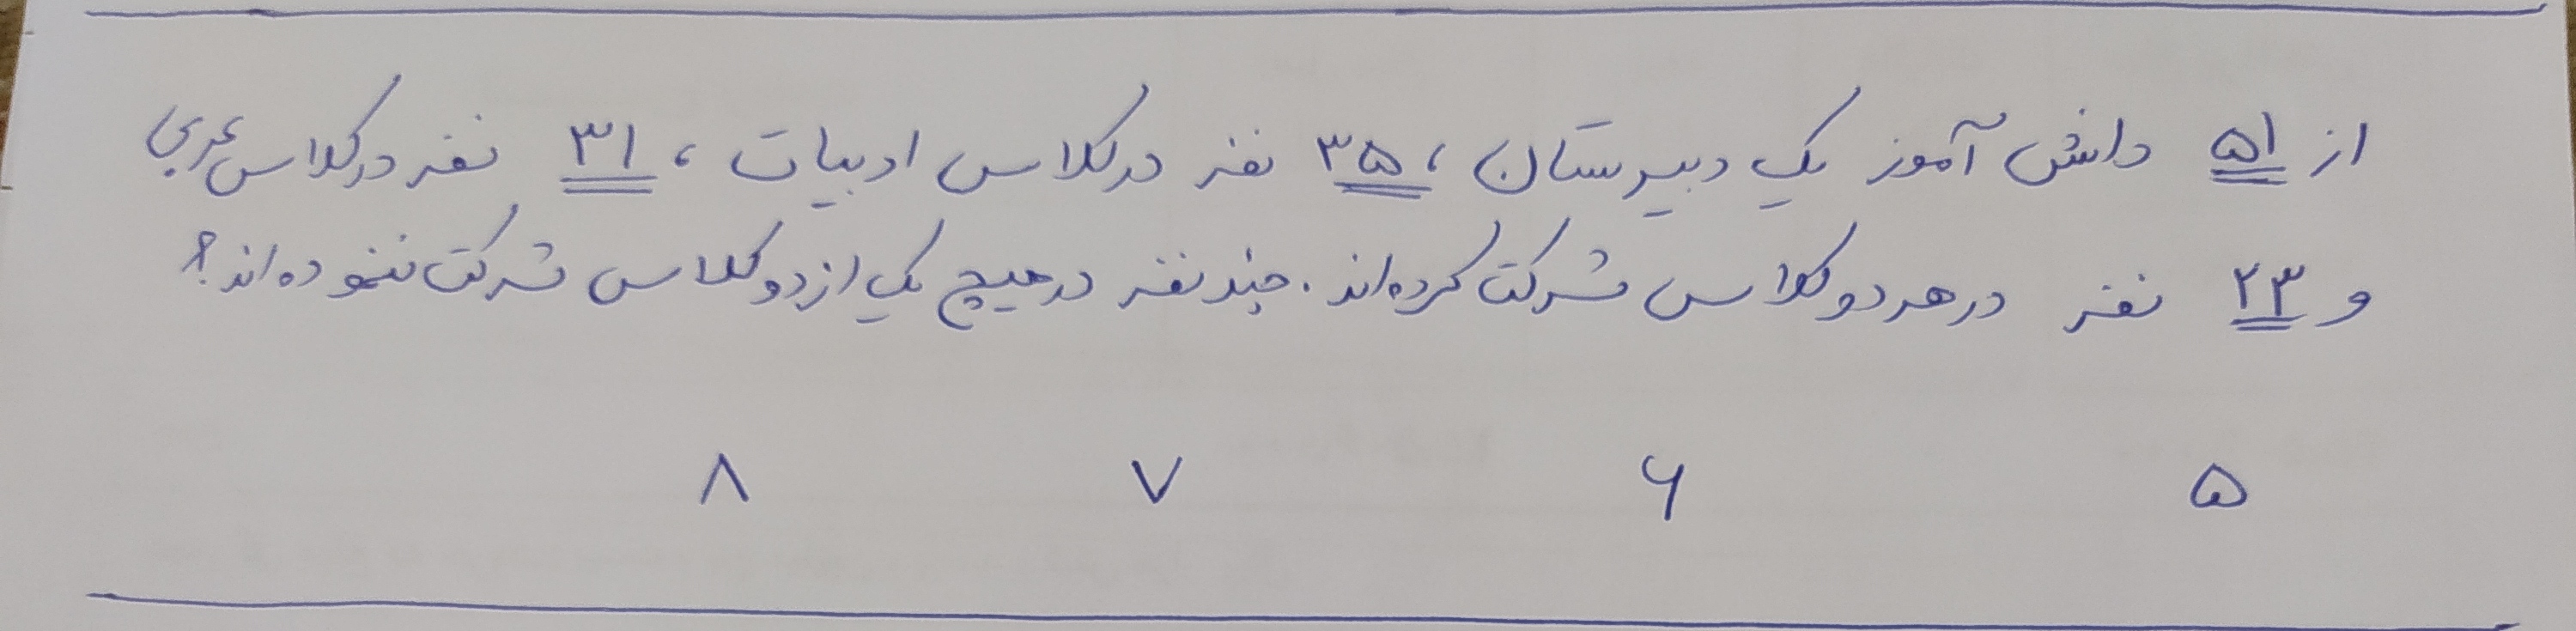 از ۵۱ دانش آموز یک دبیرستان ، ۳۵ نفر در کلاس ادبیات ، ۳۱ نفر در کلاس عربی
و ۲۳ نفر در هر دو کلاس شرکت کرده‌اند . چند نفر در هیچ یک از دو کلاس شرکت ننموده‌اند؟
۵ ۶ ۷ ۸